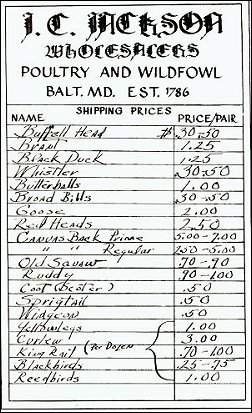 J. C. JACKSON
WHOLESALERS
POULTRY AND WILDFOWL
BALT. MD. EST. 1786
SHIPPING PRICES
NAME PRICE/PAIR
Buffell Head $ .30-.50
Brant 1.25
Black Duck 1.25
Whistler .30-.50
Butterballs 1.00
Broad Bills .30-.50
Goose 2.00
Red Heads 2.50
Canvas Back Prime 5.00-7.00
" " Regular 2.50-5.00
Old Squaw .70-.90
Ruddy .90-1.00
Coot (Scoter) .50
Sprigtail .50
Widgeon .50
Yellowlegs 1.00
Curlew 3.00
King Rail (Per Dozen) .70-1.00
Blackbirds .25-.75
Reedbirds 1.00